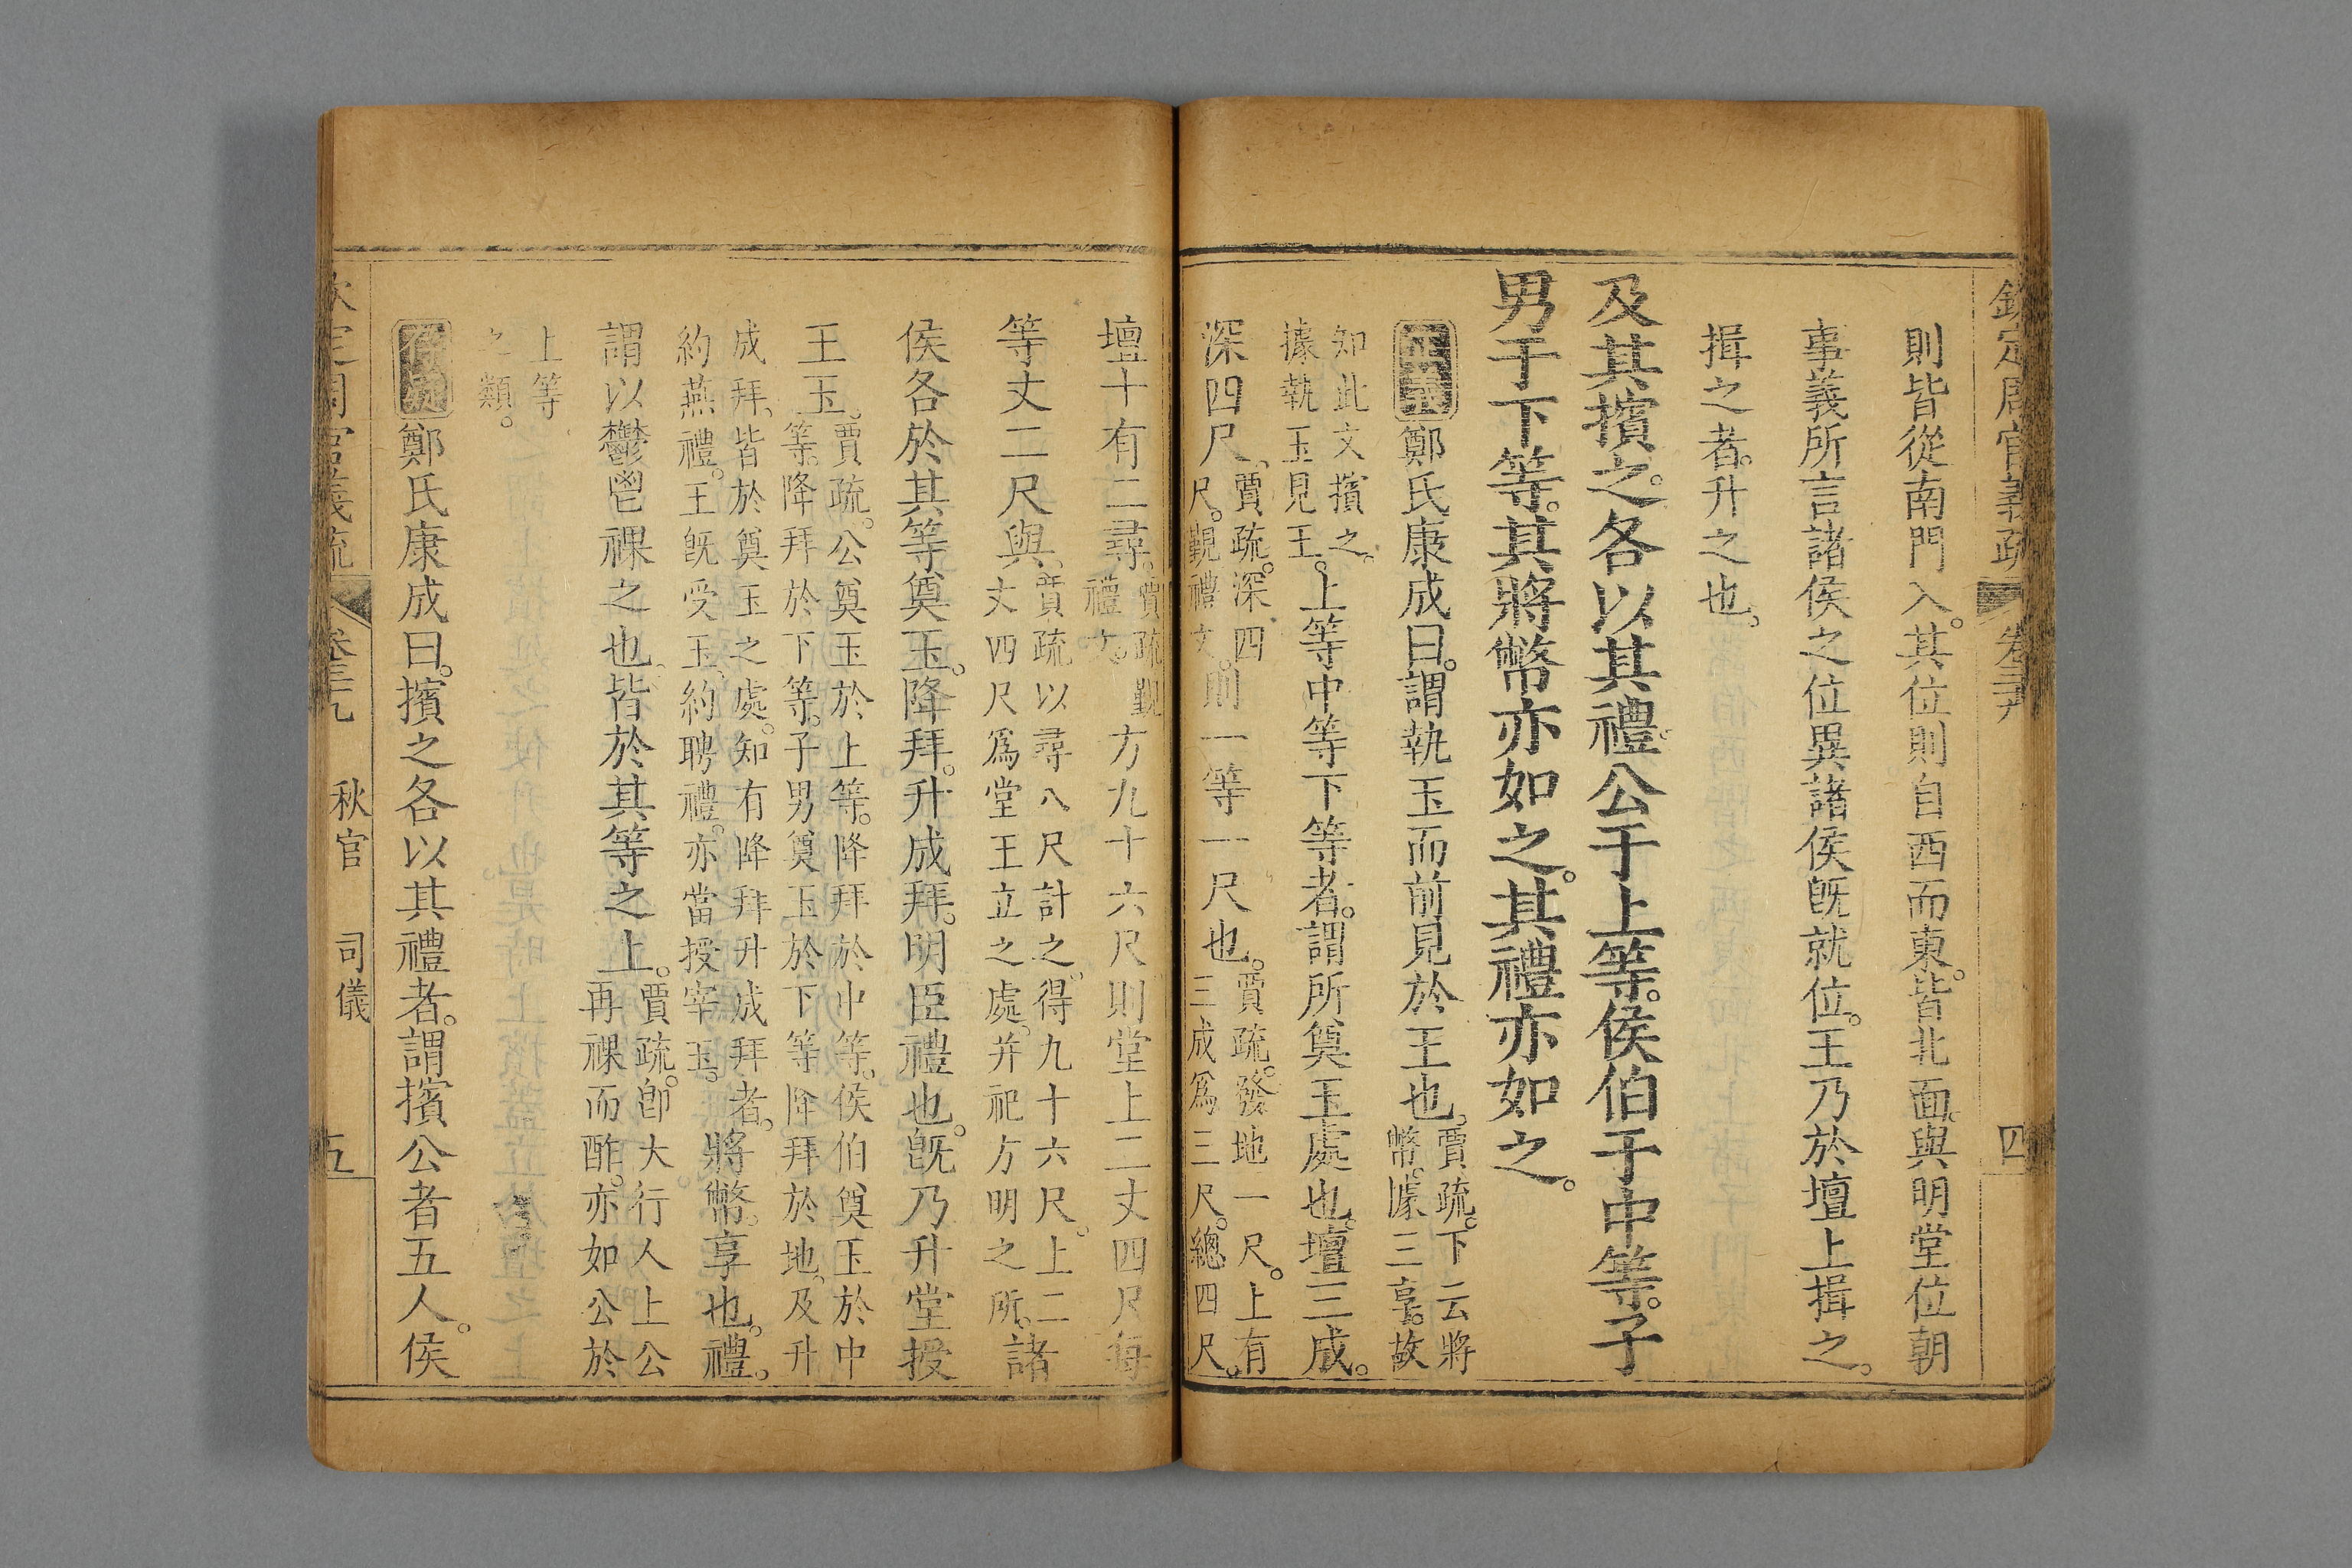 欽定周官義疏 卷三十九 四
則皆從南門入。其位則自西而東。皆北面。與明堂位朝
事義所言諸侯之位異。諸侯既就位。王乃於壇上揖之。
揖之者。升之也。
及其擯之。各以其禮。公于上等。侯伯于中等。子
男于下等。其將幣亦如之。其禮亦如之。
正義鄭氏康成曰。謂執玉而前見於王也。賈疏。下云將
幣。據三享。故
知此文擯之。
據執玉見王。上等中等下等者。謂所奠玉處也。壇三成。
深四尺、賈疏。深四
尺。覲禮文。則一等一尺也。賈疏。發地一尺。上有
三成為三尺。總四尺。
壇十有二尋。賈疏。覲
禮文。方九十六尺則堂上二丈四尺每
等丈二尺與、賈疏以尋八尺計之。得九十六尺。上二
丈四尺爲堂王立之處。并祀方明之所。諸
侯各於其等奠玉。降拜。升成拜。明臣禮也。既乃升堂授
王玉。賈疏。公奠玉於上等。降拜於中等。侯伯奠玉於中
等。降拜於下等。子男奠玉於下等降拜於地、及升
成拜、皆於奠玉之處。知有降拜升成拜者。
約燕禮。王既受玉、約聘禮。亦當授宰玉。將幣。享也。禮。
謂以鬱鬯祼之也、皆於其等之上。賈疏。卽大行人上公
再祼而酢。亦如公於
上等
之類。
存疑鄭氏康成曰。擯之各以其禮者。謂擯公者五人。侯
欽定周官義疏 卷三十九 秋官 司儀 五